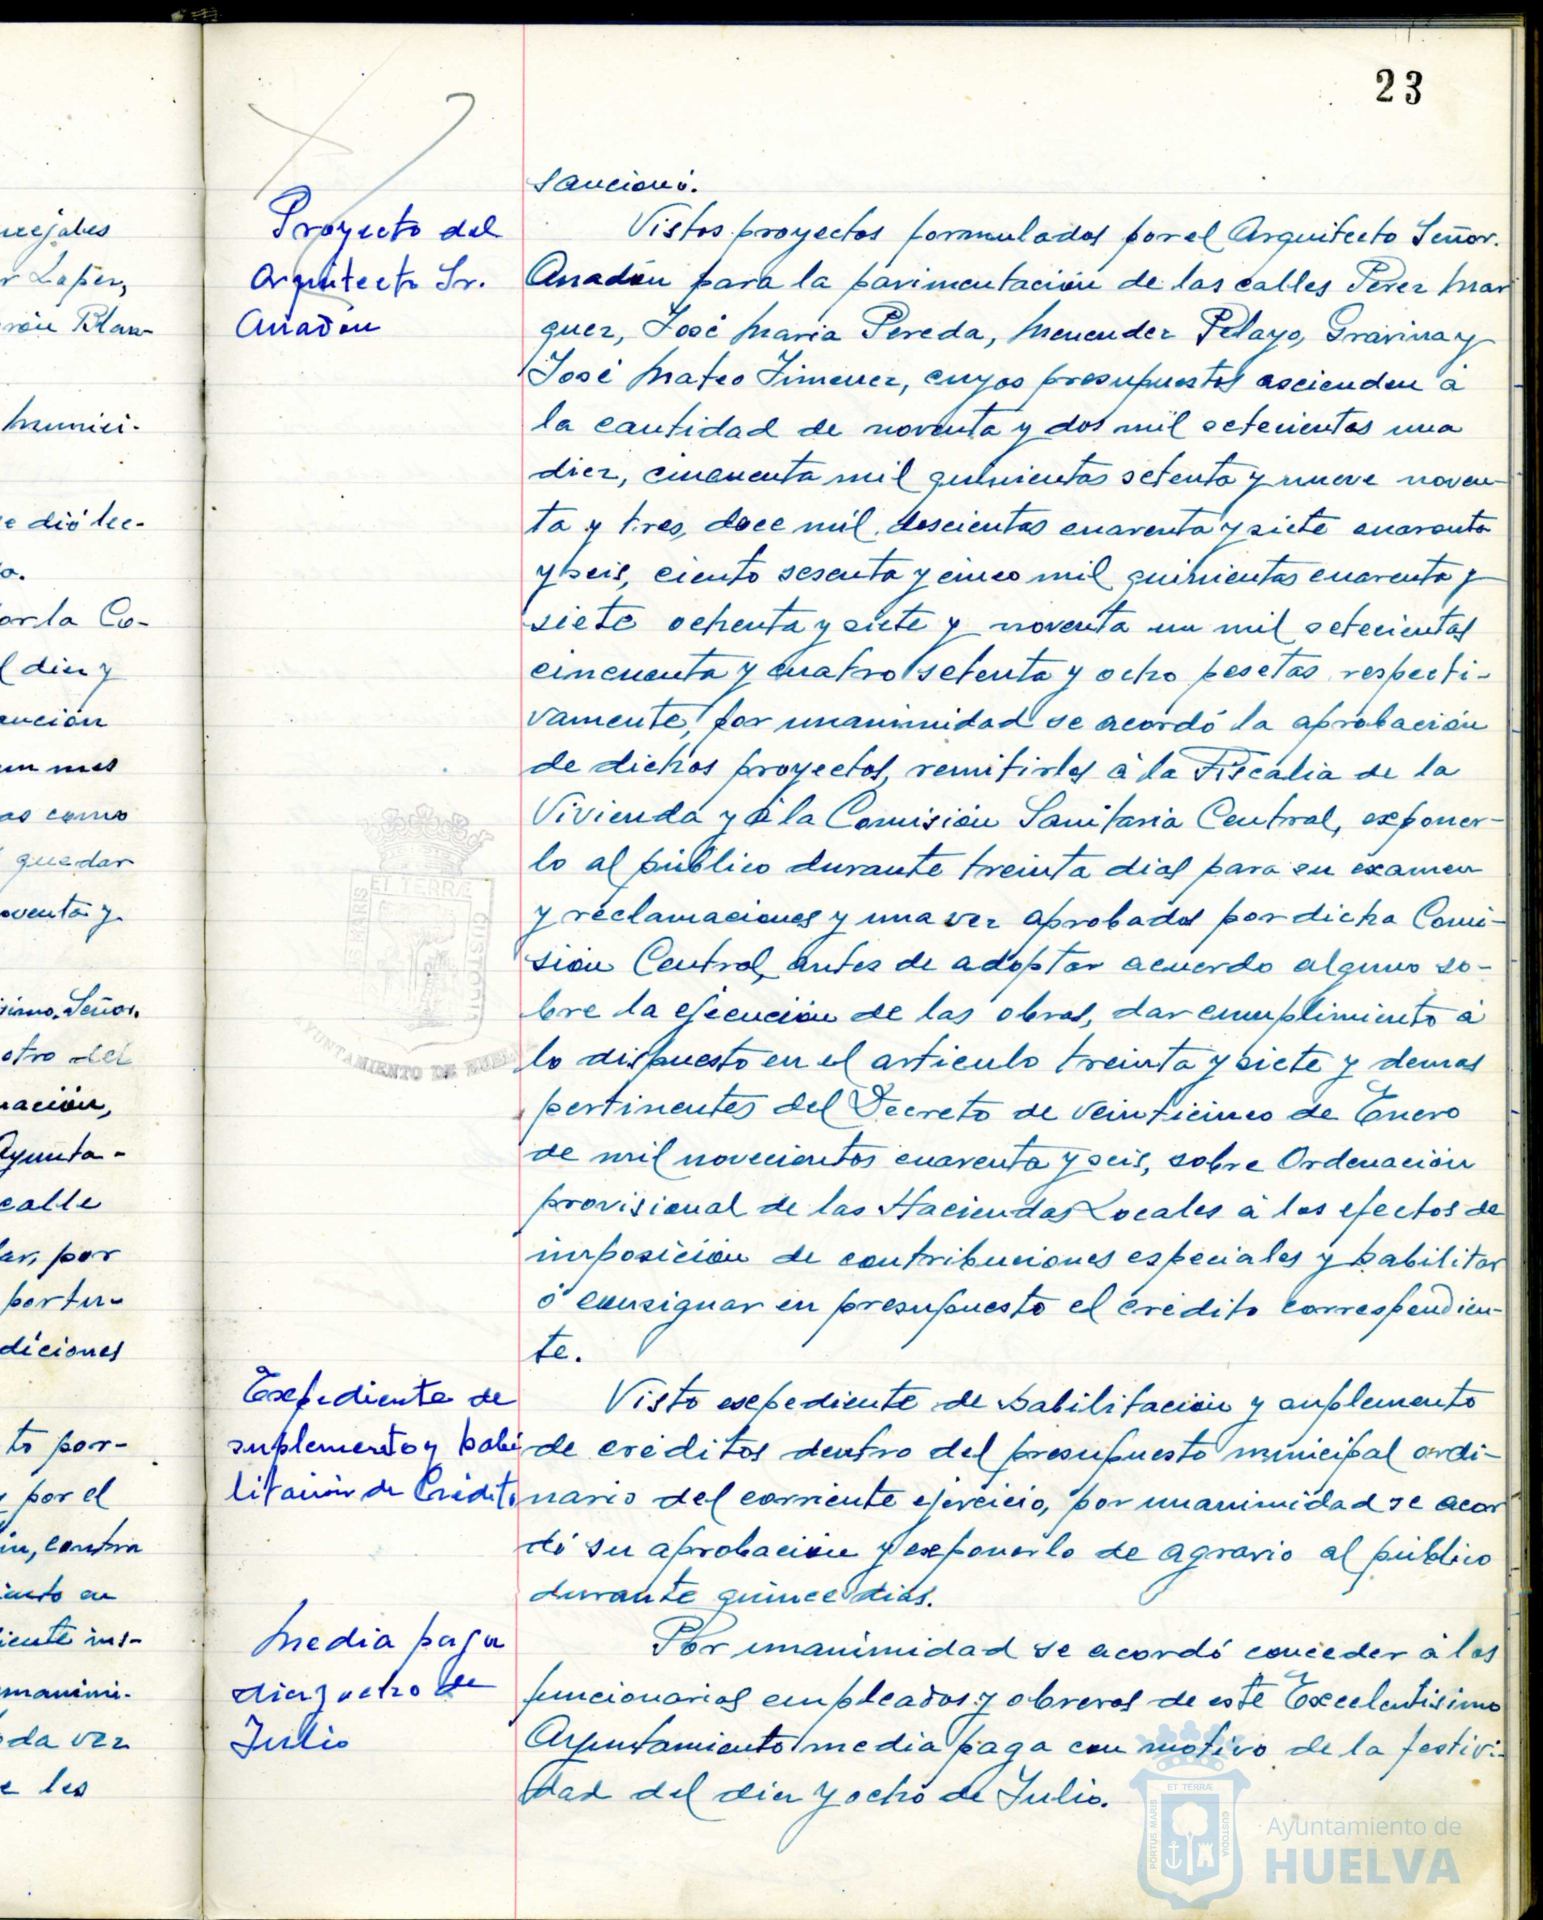 23
ncejales
r Lopez,
Munici-
e dió lec-
o.
or la Co-
l diez y
ención
un mes
as como
quedar
oventa y
simo. Señor.
otro del
nación,
Ayunta-
calle
lar, por
portu-
diciones
to por-
y por el
in, contra
iento en
iente ins-
manimi-
da vez
e les
Proyecto del
Arquitecto Sr.
Anadón
sancionó.
Vistos proyectos formulados por el Arquitecto Señor.
Anadón para la pavimentación de las calles Perez Mar
quez, José Maria Pereda, Menendez Pelayo, Gravina y
José Mateo Jimenez, cuyos presupuestos ascienden á
la cantidad de noventa y dos mil setecientas una
diez, cincuenta mil quinientas setenta y nueve noven-
ta y tres, doce mil doscientas cuarenta y siete cuarenta
y seis, ciento sesenta y cinco mil quinientas cuarenta y
siete ochenta y siete y noventa un mil setecientas
cincuenta y cuatro setenta y ocho pesetas respecti-
vamente, por unanimidad se acordó la aprobación
de dichos proyectos, remitirlos á la Fiscalia de la
Vivienda y á la Comisión Sanitaria Central, exponer-
lo al público durante treinta dias para su examen
y reclamaciones y una vez aprobados por dicha Comi-
sión Central, antes de adoptar acuerdo alguno so-
bre la ejecución de las obras, dar cumplimiento á
lo dispuesto en el articulo treinta y siete y demas
pertinentes del Decreto de veinticinco de Enero
de mil novecientos cuarenta y seis, sobre Ordenación
provisional de las Haciendas Locales á los efectos de
imposición de contribuciones especiales y habilitar
ó consignar en presupuesto el crédito correspondien-
te.
Expediente de
suplemento y habi
litación de Crédito
Visto expediente de habilitación y suplemento
de créditos dentro del presupuesto municipal ordi-
nario del corriente ejercicio, por unanimidad se acor
dó su aprobación y exponerlo de agravio al público
durante quince dias.
Media paga
diez y ocho de
Julio
Por unanimidad se acordó conceder á los
funcionarios empleados y obreros de este Excelentisimo
Ayuntamiento media paga con motivo de la festivi-
dad del diez y ocho de Julio.
ET TERRÆ
CUSTODIA
AYUNTAMIENTO DE HUELVA
PORTUS MARIS
ET TERRÆ
CUSTODIA
Ayuntamiento de
HUELVA